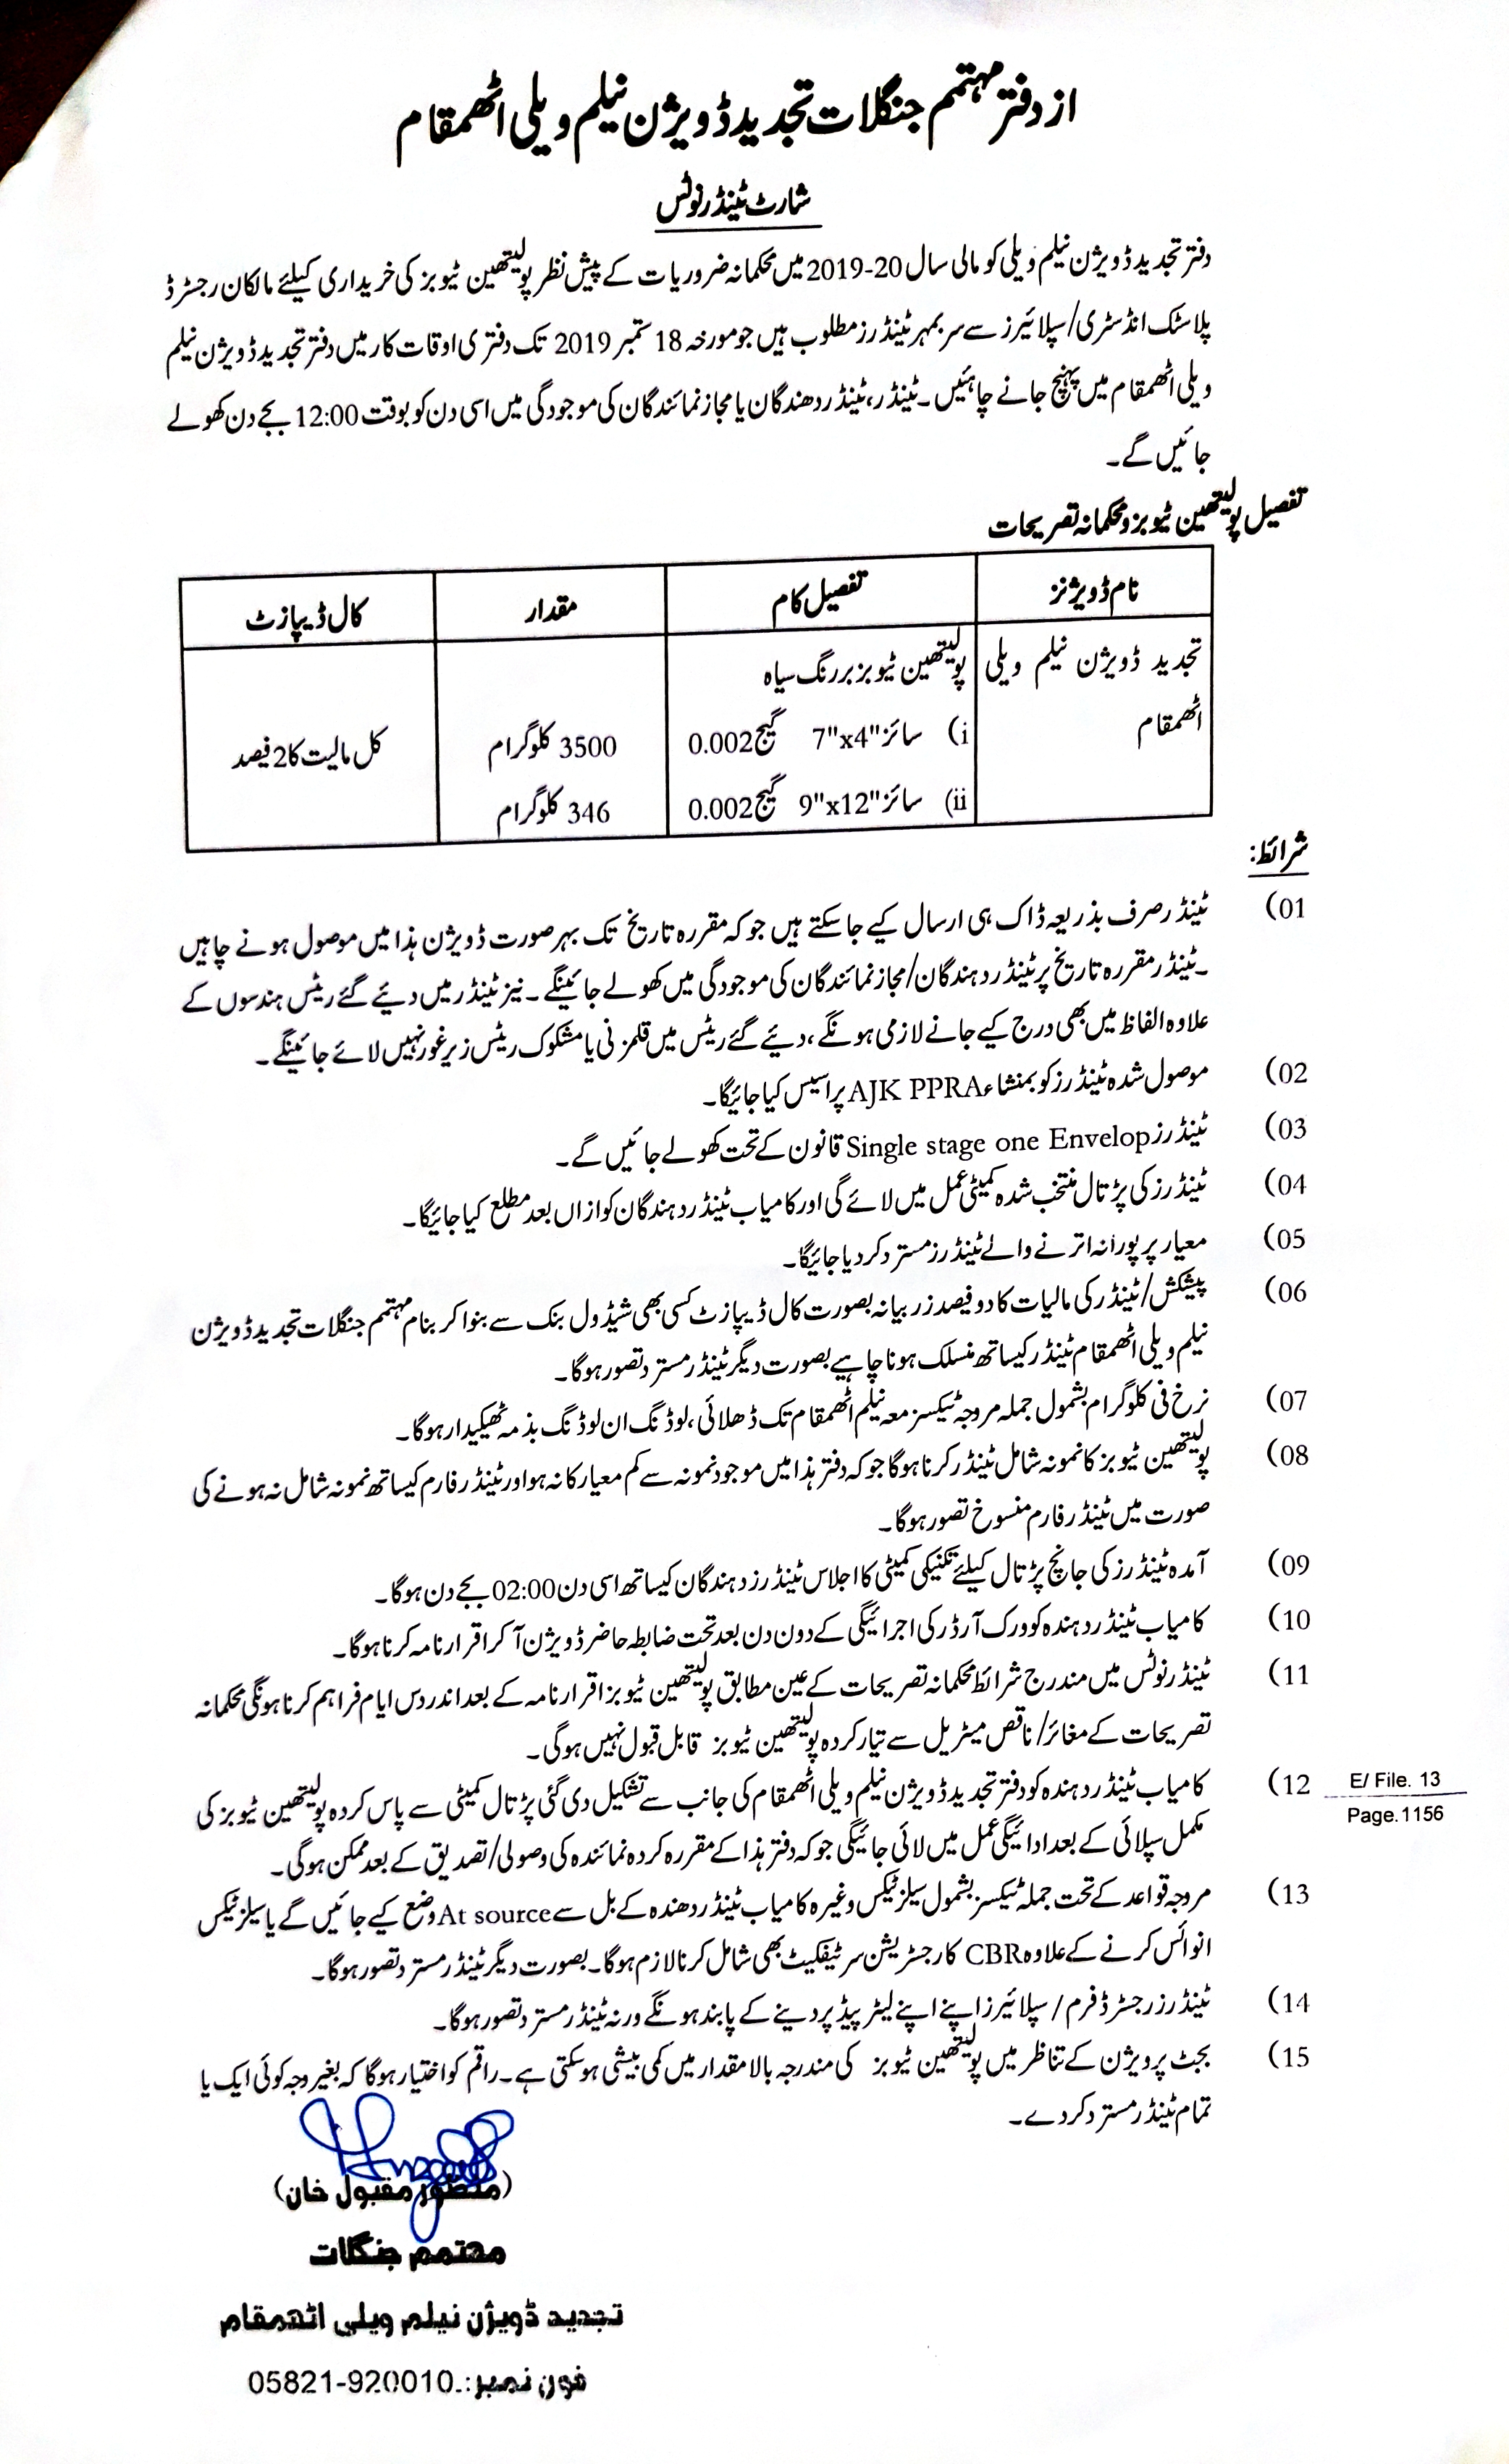 از دفتر مہتمم جنگلات تجدید ڈویژن نیلم ویلی اٹھمقام
شارٹ ٹینڈر نوٹس
دفتر تجدید ڈویژن نیلم ویلی کو مالی سال 20-2019 میں محکمانہ ضروریات کے پیش نظر پولیتھین ٹیوبز کی خریداری کیلئے مالکان رجسٹرڈ
پلاسٹک انڈسٹری/سپلائیرز سے سربمہر ٹینڈرز مطلوب ہیں جو مورخہ 18 ستمبر 2019 تک دفتری اوقات کار میں دفتر تجدید ڈویژن نیلم
ویلی اٹھمقام میں پہنچ جانے چاہئیں۔ ٹینڈر، ٹینڈر دھندگان یا مجاز نمائندگان کی موجودگی میں اسی دن کو بوقت 12:00 بجے دن کھولے
جائیں گے۔
تفصیل پولیتھین ٹیوبز و محکمانہ تصریحات
نام ڈویژنز تفصیل کام مقدار کال ڈیپازٹ
تجدید ڈویژن نیلم ویلی پولیتھین ٹیوبز بررنگ سیاہ
اٹھمقام
i) سائز 7"x4" گیج 0.002 3500 کلوگرام کل مالیت کا 2 فیصد
ii) سائز 9"x12" گیج 0.002 346 کلوگرام
شرائط:
01) ٹینڈر صرف بذریعہ ڈاک ہی ارسال کیے جاسکتے ہیں جو کہ مقررہ تاریخ تک بہر صورت ڈویژن ہذا میں موصول ہونے چاہیں
۔ ٹینڈر مقررہ تاریخ پر ٹینڈر دہندگان/مجاز نمائندگان کی موجودگی میں کھولے جائینگے۔ نیز ٹینڈر میں دیئے گئے ریٹس ہندسوں کے
علاوہ الفاظ میں بھی درج کیے جانے لازمی ہونگے، دیئے گئے ریٹس میں قلمزنی یا مشکوک ریٹس زیر غور نہیں لائے جائینگے۔
02) موصول شدہ ٹینڈرز کو بمنشاء AJK PPRA پراسیس کیا جائیگا۔
03) ٹینڈرز Single stage one Envelop قانون کے تحت کھولے جائیں گے۔
04) ٹینڈرز کی پڑتال منتخب شدہ کمیٹی عمل میں لائے گی اور کامیاب ٹینڈر دہندگان کو ازاں بعد مطلع کیا جائیگا۔
05) معیار پر پورا نہ اترنے والے ٹینڈرز مسترد کر دیا جائیگا۔
06) پیشکش/ٹینڈر کی مالیات کا دو فیصد زربیانہ بصورت کال ڈیپازٹ کسی بھی شیڈول بنک سے بنوا کر بنام مہتمم جنگلات تجدید ڈویژن
نیلم ویلی اٹھمقام ٹینڈر کیساتھ منسلک ہونا چاہیے بصورت دیگر ٹینڈر مسترد تصور ہوگا۔
07) نرخ فی کلوگرام بشمول جملہ مروجہ ٹیکسز معہ نیلم اٹھمقام تک ڈھلائی، لوڈنگ ان لوڈنگ بذمہ ٹھیکیدار ہوگا۔
08) پولیتھین ٹیوبز کا نمونہ شامل ٹینڈر کرنا ہوگا جو کہ دفتر ہذا میں موجود نمونہ سے کم معیار کا نہ ہو اور ٹینڈر فارم کیساتھ نمونہ شامل نہ ہونے کی
صورت میں ٹینڈر فارم منسوخ تصور ہوگا۔
09) آمدہ ٹینڈرز کی جانچ پڑتال کیلئے تکنیکی کمیٹی کا اجلاس ٹینڈرز دہندگان کیساتھ اسی دن 02:00 بجے دن ہوگا۔
10) کامیاب ٹینڈر دہندہ کو ورک آرڈر کی اجرائیگی کے دون دن بعد تحت ضابطہ حاضر ڈویژن آکر اقرار نامہ کرنا ہوگا۔
11) ٹینڈر نوٹس میں مندرج شرائط محکمانہ تصریحات کے عین مطابق پولیتھین ٹیوبز اقرار نامہ کے بعد اندر دس ایام فراہم کرنا ہونگی محکمانہ
تصریحات کے مغائر/ناقص میٹریل سے تیار کردہ پولیتھین ٹیوبز قابل قبول نہیں ہوگی۔
12) کامیاب ٹینڈر دہندہ کو دفتر تجدید ڈویژن نیلم ویلی اٹھمقام کی جانب سے تشکیل دی گئی پڑتال کمیٹی سے پاس کردہ پولیتھین ٹیوبز کی
مکمل سپلائی کے بعد ادائیگی عمل میں لائی جائیگی جو کہ دفتر ہذا کے مقررہ کردہ نمائندہ کی وصولی/تصدیق کے بعد ممکن ہوگی۔
E/ File. 13
Page.1156
13) مروجہ قواعد کے تحت جملہ ٹیکسز بشمول سیلز ٹیکس وغیرہ کامیاب ٹینڈر دھندہ کے بل سے At source وضع کیے جائیں گے یا سیلز ٹیکس
انوائس کرنے کے علاوہ CBR کا رجسٹریشن سرٹیفکیٹ بھی شامل کرنا لازم ہوگا۔ بصورت دیگر ٹینڈر مسترد تصور ہوگا۔
14) ٹینڈرز رجسٹرڈ فرم / سپلائیرز اپنے اپنے لیٹر پیڈ پر دینے کے پابند ہونگے ورنہ ٹینڈر مسترد تصور ہوگا۔
15) بجٹ پرویژن کے تناظر میں پولیتھین ٹیوبز کی مندرجہ بالا مقدار میں کمی بیشی ہوسکتی ہے۔ راقم کو اختیار ہوگا کہ بغیر وجہ کوئی ایک یا
تمام ٹینڈر مسترد کر دے۔
(منظور مقبول خان)
مہتمم جنگلات
تجدید ڈویژن نیلم ویلی اٹھمقام
فون نمبر:.05821-920010